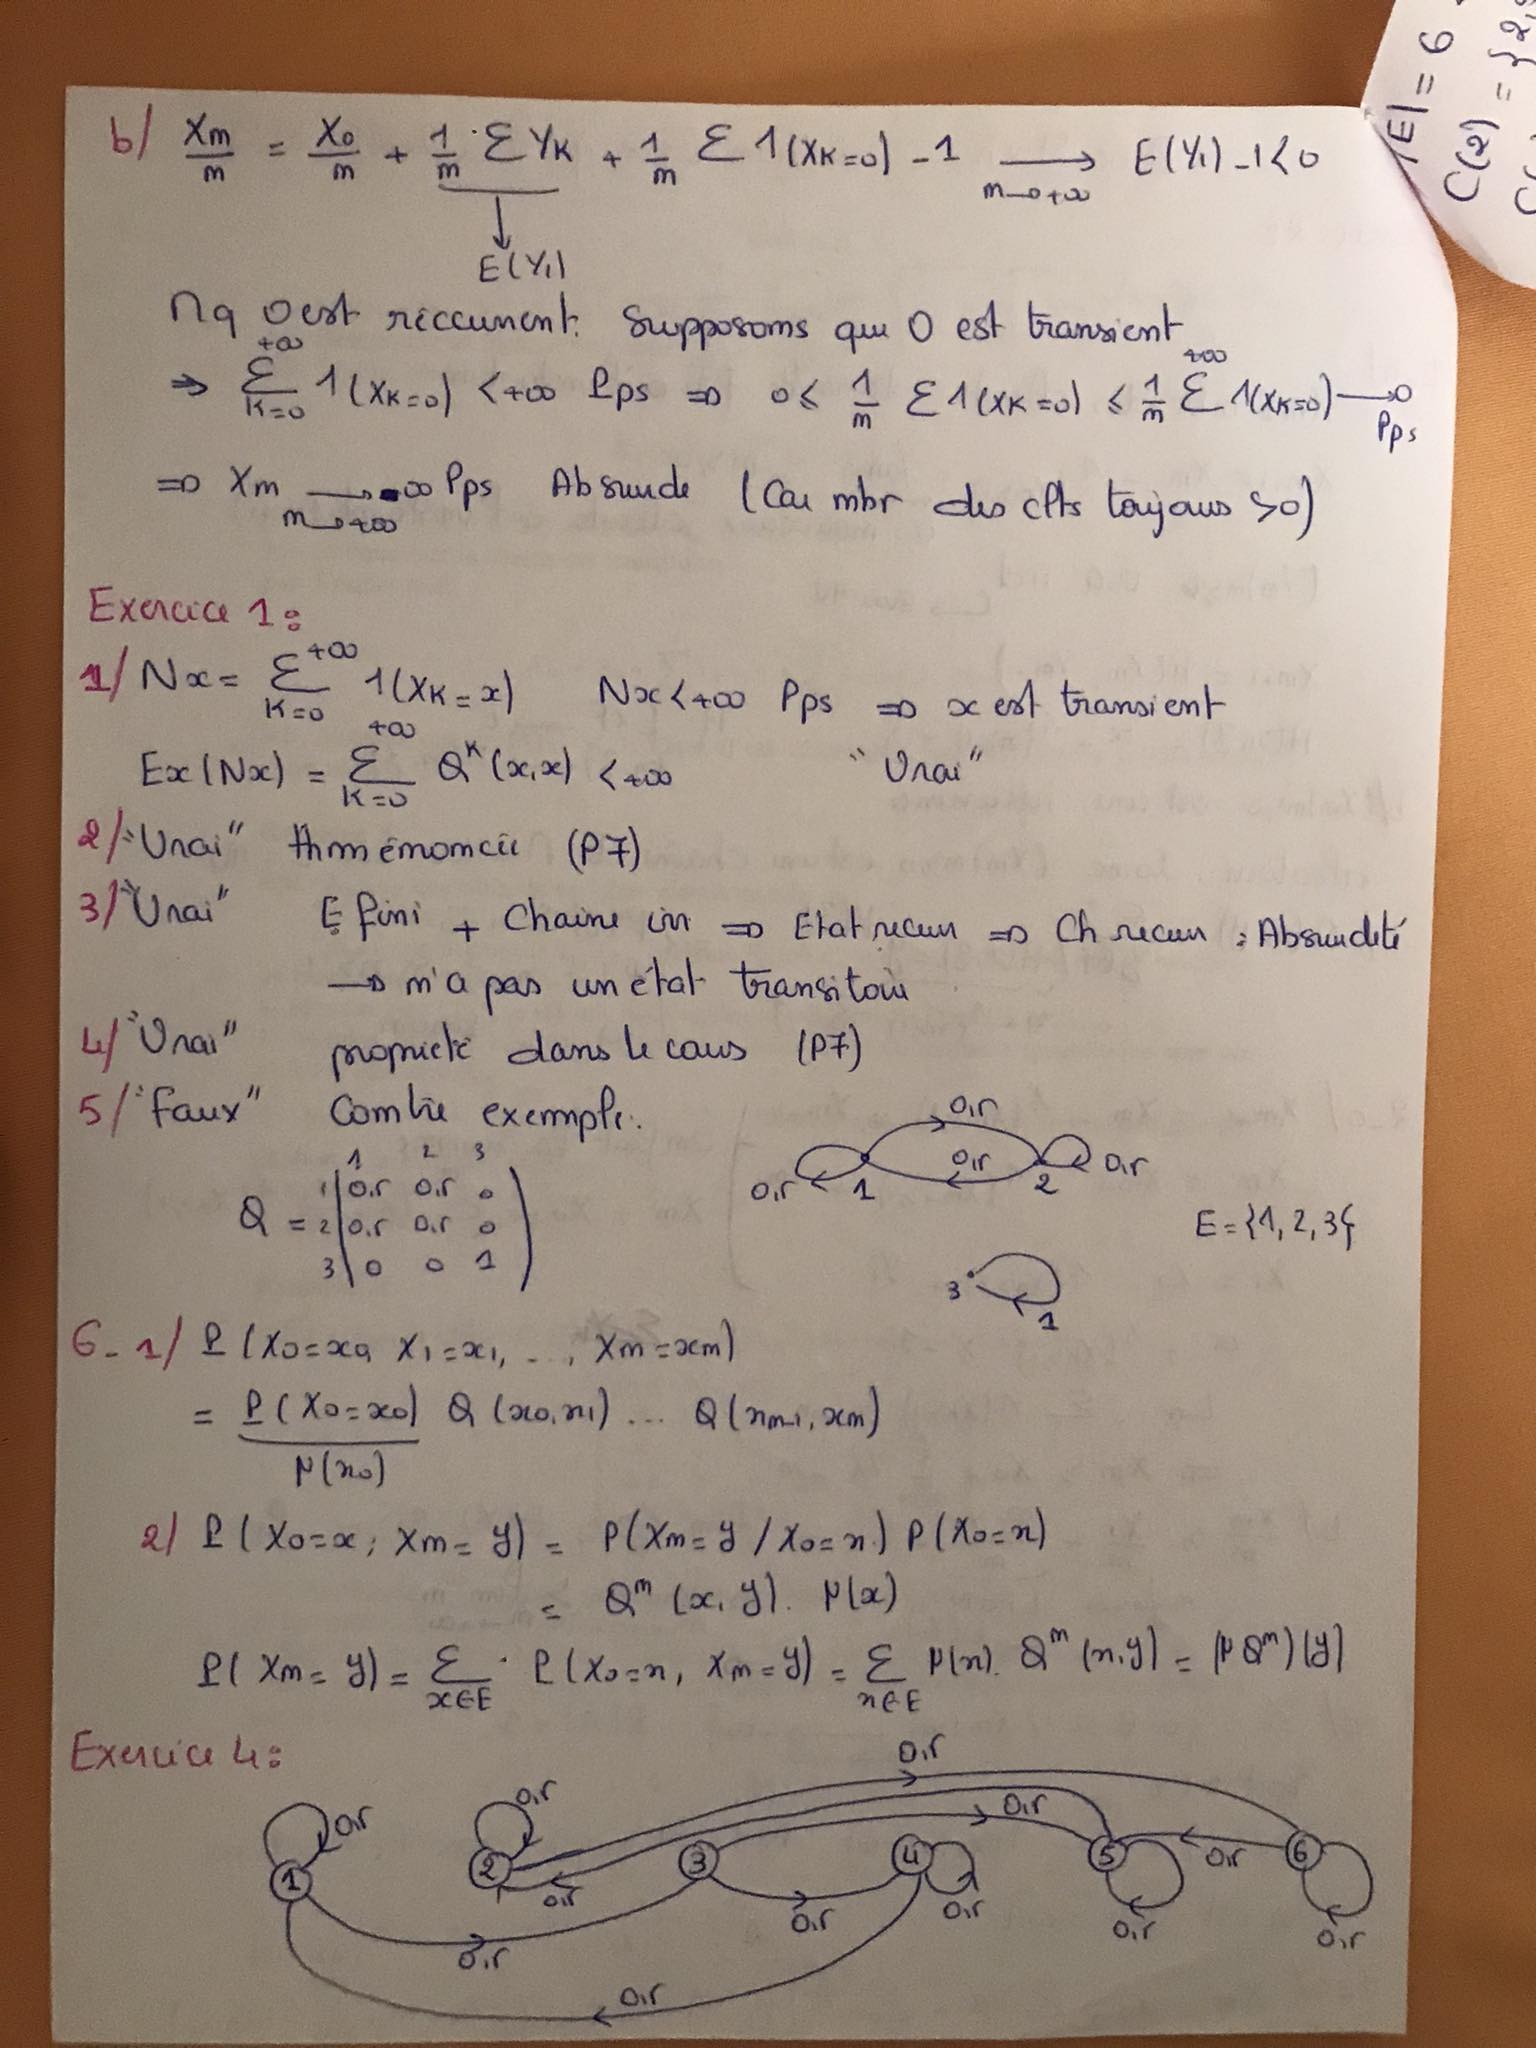 b/ Xm/m = X0/m + 1/m ΣYK + 1/m Σ 1(XK=0) - 1 →(m→+∞) E(Y1) - 1 < 0
↓
E(Y1)
Mq 0 est réccurent. Supposoms que 0 est transient
⇒ Σ(K=0, +∞) 1(XK=0) < +∞ Pps ⇒ 0 ≤ 1/m Σ 1(XK=0) ≤ 1/m Σ(+∞) 1(XK=0) → 0 Pps
⇒ Xm →(m→+∞) -∞ Pps Absurde (Car mbr des clts toujours >0)
Exercice 1:
1/ Nx = Σ(K=0, +∞) 1(XK=x) Nx < +∞ Pps ⇒ x est transient
Ex(Nx) = Σ(K=0, +∞) Q^K(x,x) < +∞ "Vrai"
2/ "Vrai" thm émomcée (P7)
3/ "Vrai" E fini + Chaine irr ⇒ Etat recurr ⇒ Ch recurr : Absurdité
→ m'a pas un état transitoire
4/ "Vrai" propriété dans le cours (P7)
5/ "Faux" Comtre exemple.
1 2 3
Q = 1 0,5 0,5 0
2 0,5 0,5 0
3 0 0 1
0,5 0,5 0,5 0,5 1 2
E = {1, 2, 3}
3 1
6- 1/ P(X0=x0, X1=x1, ..., Xm=xm)
= P(X0=x0) Q(x0,x1) ... Q(xm-1,xm)
μ(x0)
2/ P(X0=x; Xm=y) = P(Xm=y / X0=x) P(X0=x)
= Q^m(x,y). μ(x)
P(Xm=y) = Σ(x∈E) P(X0=x, Xm=y) = Σ(x∈E) μ(x). Q^m(x,y) = (μQ^m)(y)
Exercice 4:
0,5
0,5 0,5 0,5
1 2 3 4 5 6
0,5 0,5 0,5 0,5 0,5 0,5
0,5
0,5
|E| = 6
C(2) = {2,5